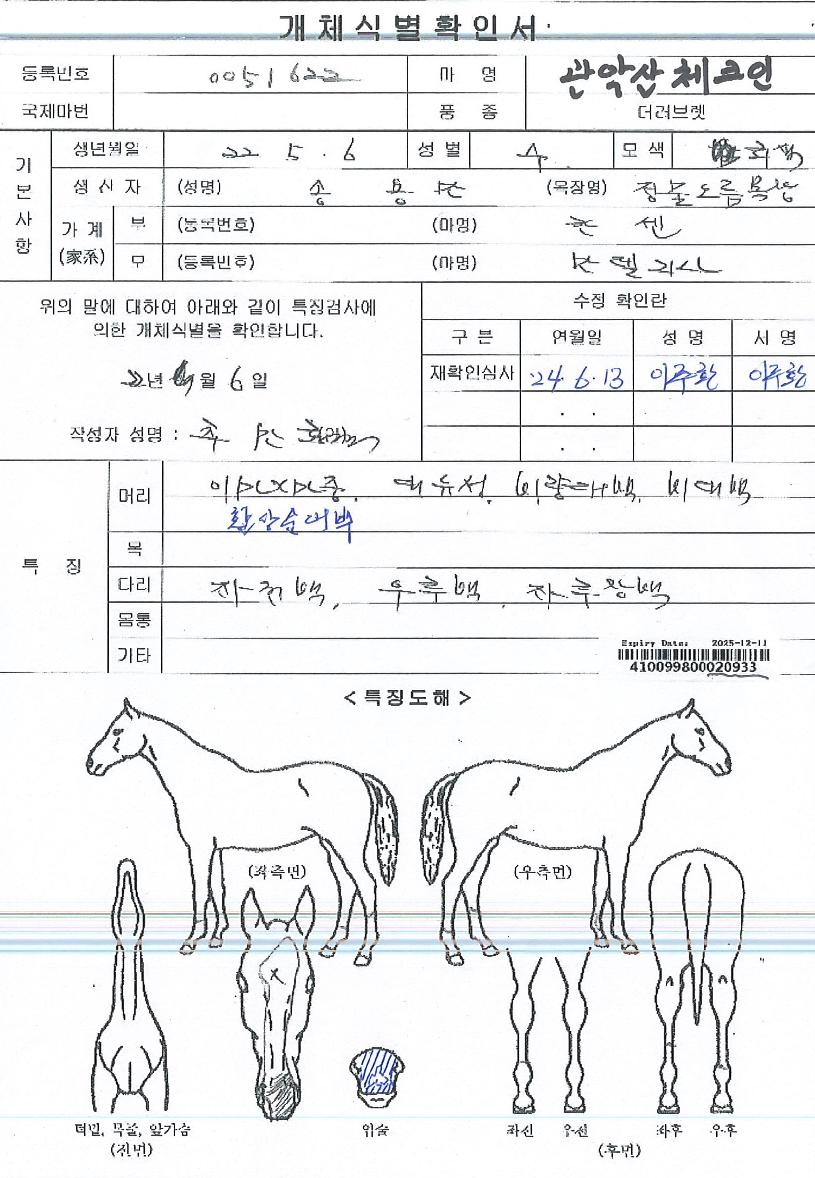 개체식별확인서
등록번호 0051622 마 명 관악산체크인
국제마번 품 종 더러브렛
기본사항
생년월일 22 5 . 6 성별 수 모색 회색
생산자 (성명) 송 용 (목장명) 목장
가계 (家系) 부 (등록번호) (마명) 센
모 (등록번호) (마명)
위의 말에 대하여 아래와 같이 특징검사에
의한 개체식별을 확인합니다.
22년 월 6 일
작성자 성명 :
수정 확인란
구 분 연월일 성 명 서 명
재확인심사 '24. 6. 13 이주환 이주환
. .
. .
특 징
머리 대유성, 비량대백, 비대백
목
다리 우후백
몸통
기타
Expiry Date: 2025-12-11
410099800020933
<특징도해>
(좌측면) (우측면)
턱밑, 목줄, 앞가슴
(전면)
위술
좌전 우전 좌후 우후
(후면)